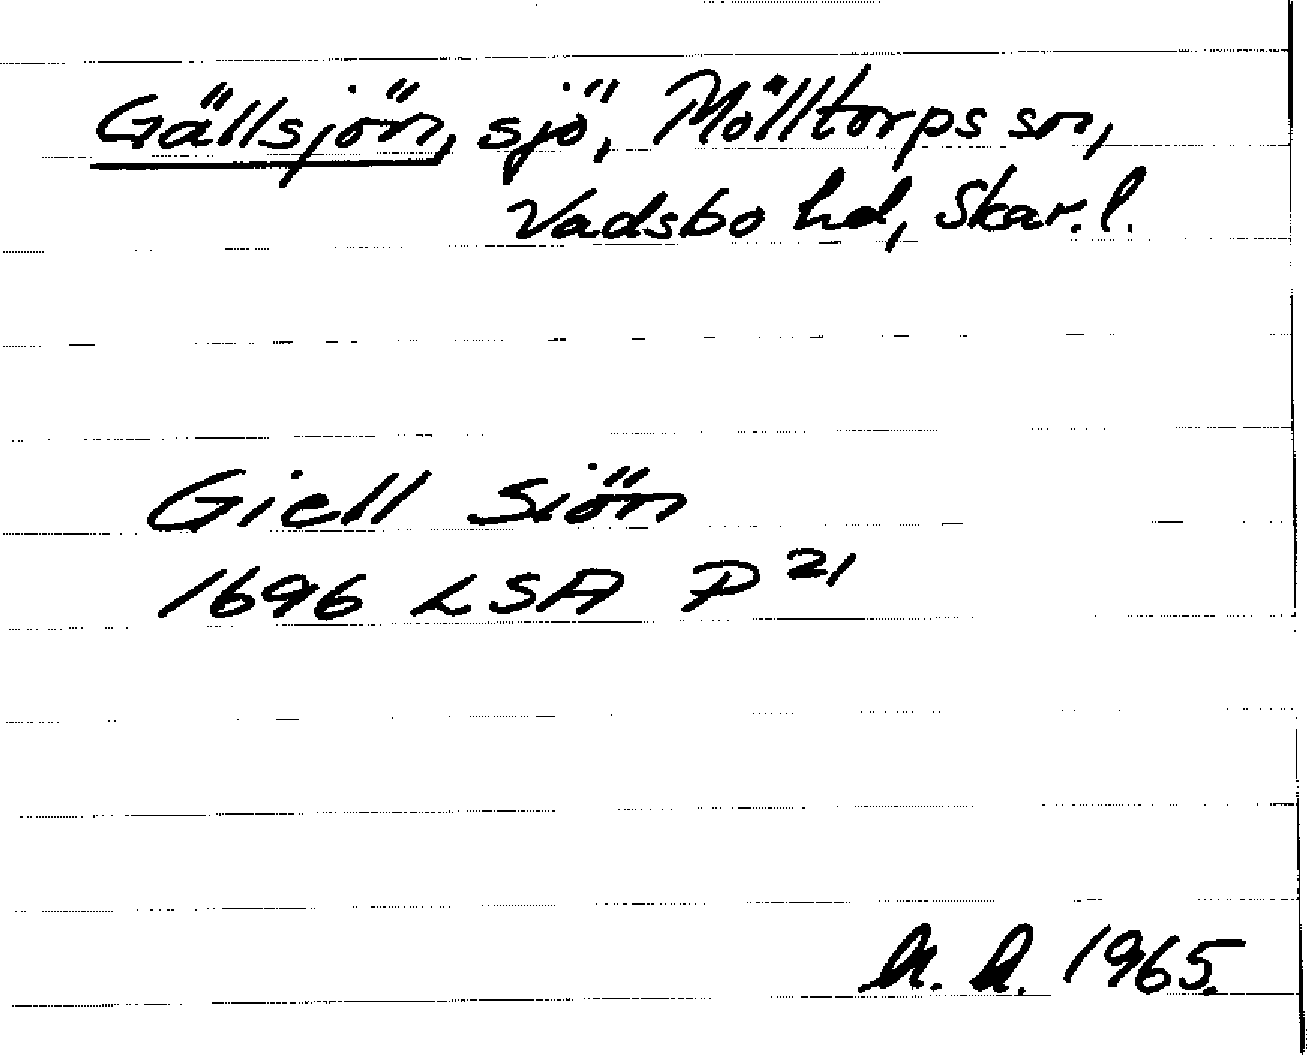 Gällsjön, sjö, Mölltorps sn,
Vadsbo hd, Skar. l.
Giell Siön
1696 LSA P 21
1965.